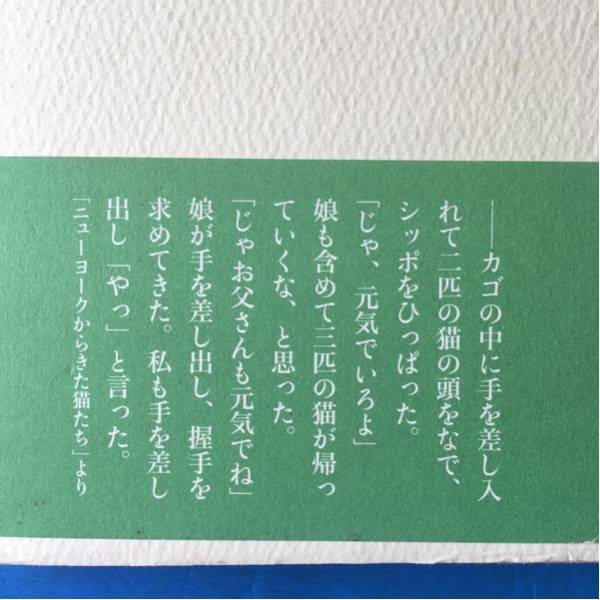 ――カゴの中に手を差し入
れて二匹の猫の頭をなで、
シッポをひっぱった。
「じゃ、元気でいろよ」
娘も含めて三匹の猫が帰っ
ていくな、と思った。
「じゃお父さんも元気でね」
娘が手を差し出し、握手を
求めてきた。私も手を差し
出し「やっ」と言った。
「ニューヨークからきた猫たち」より